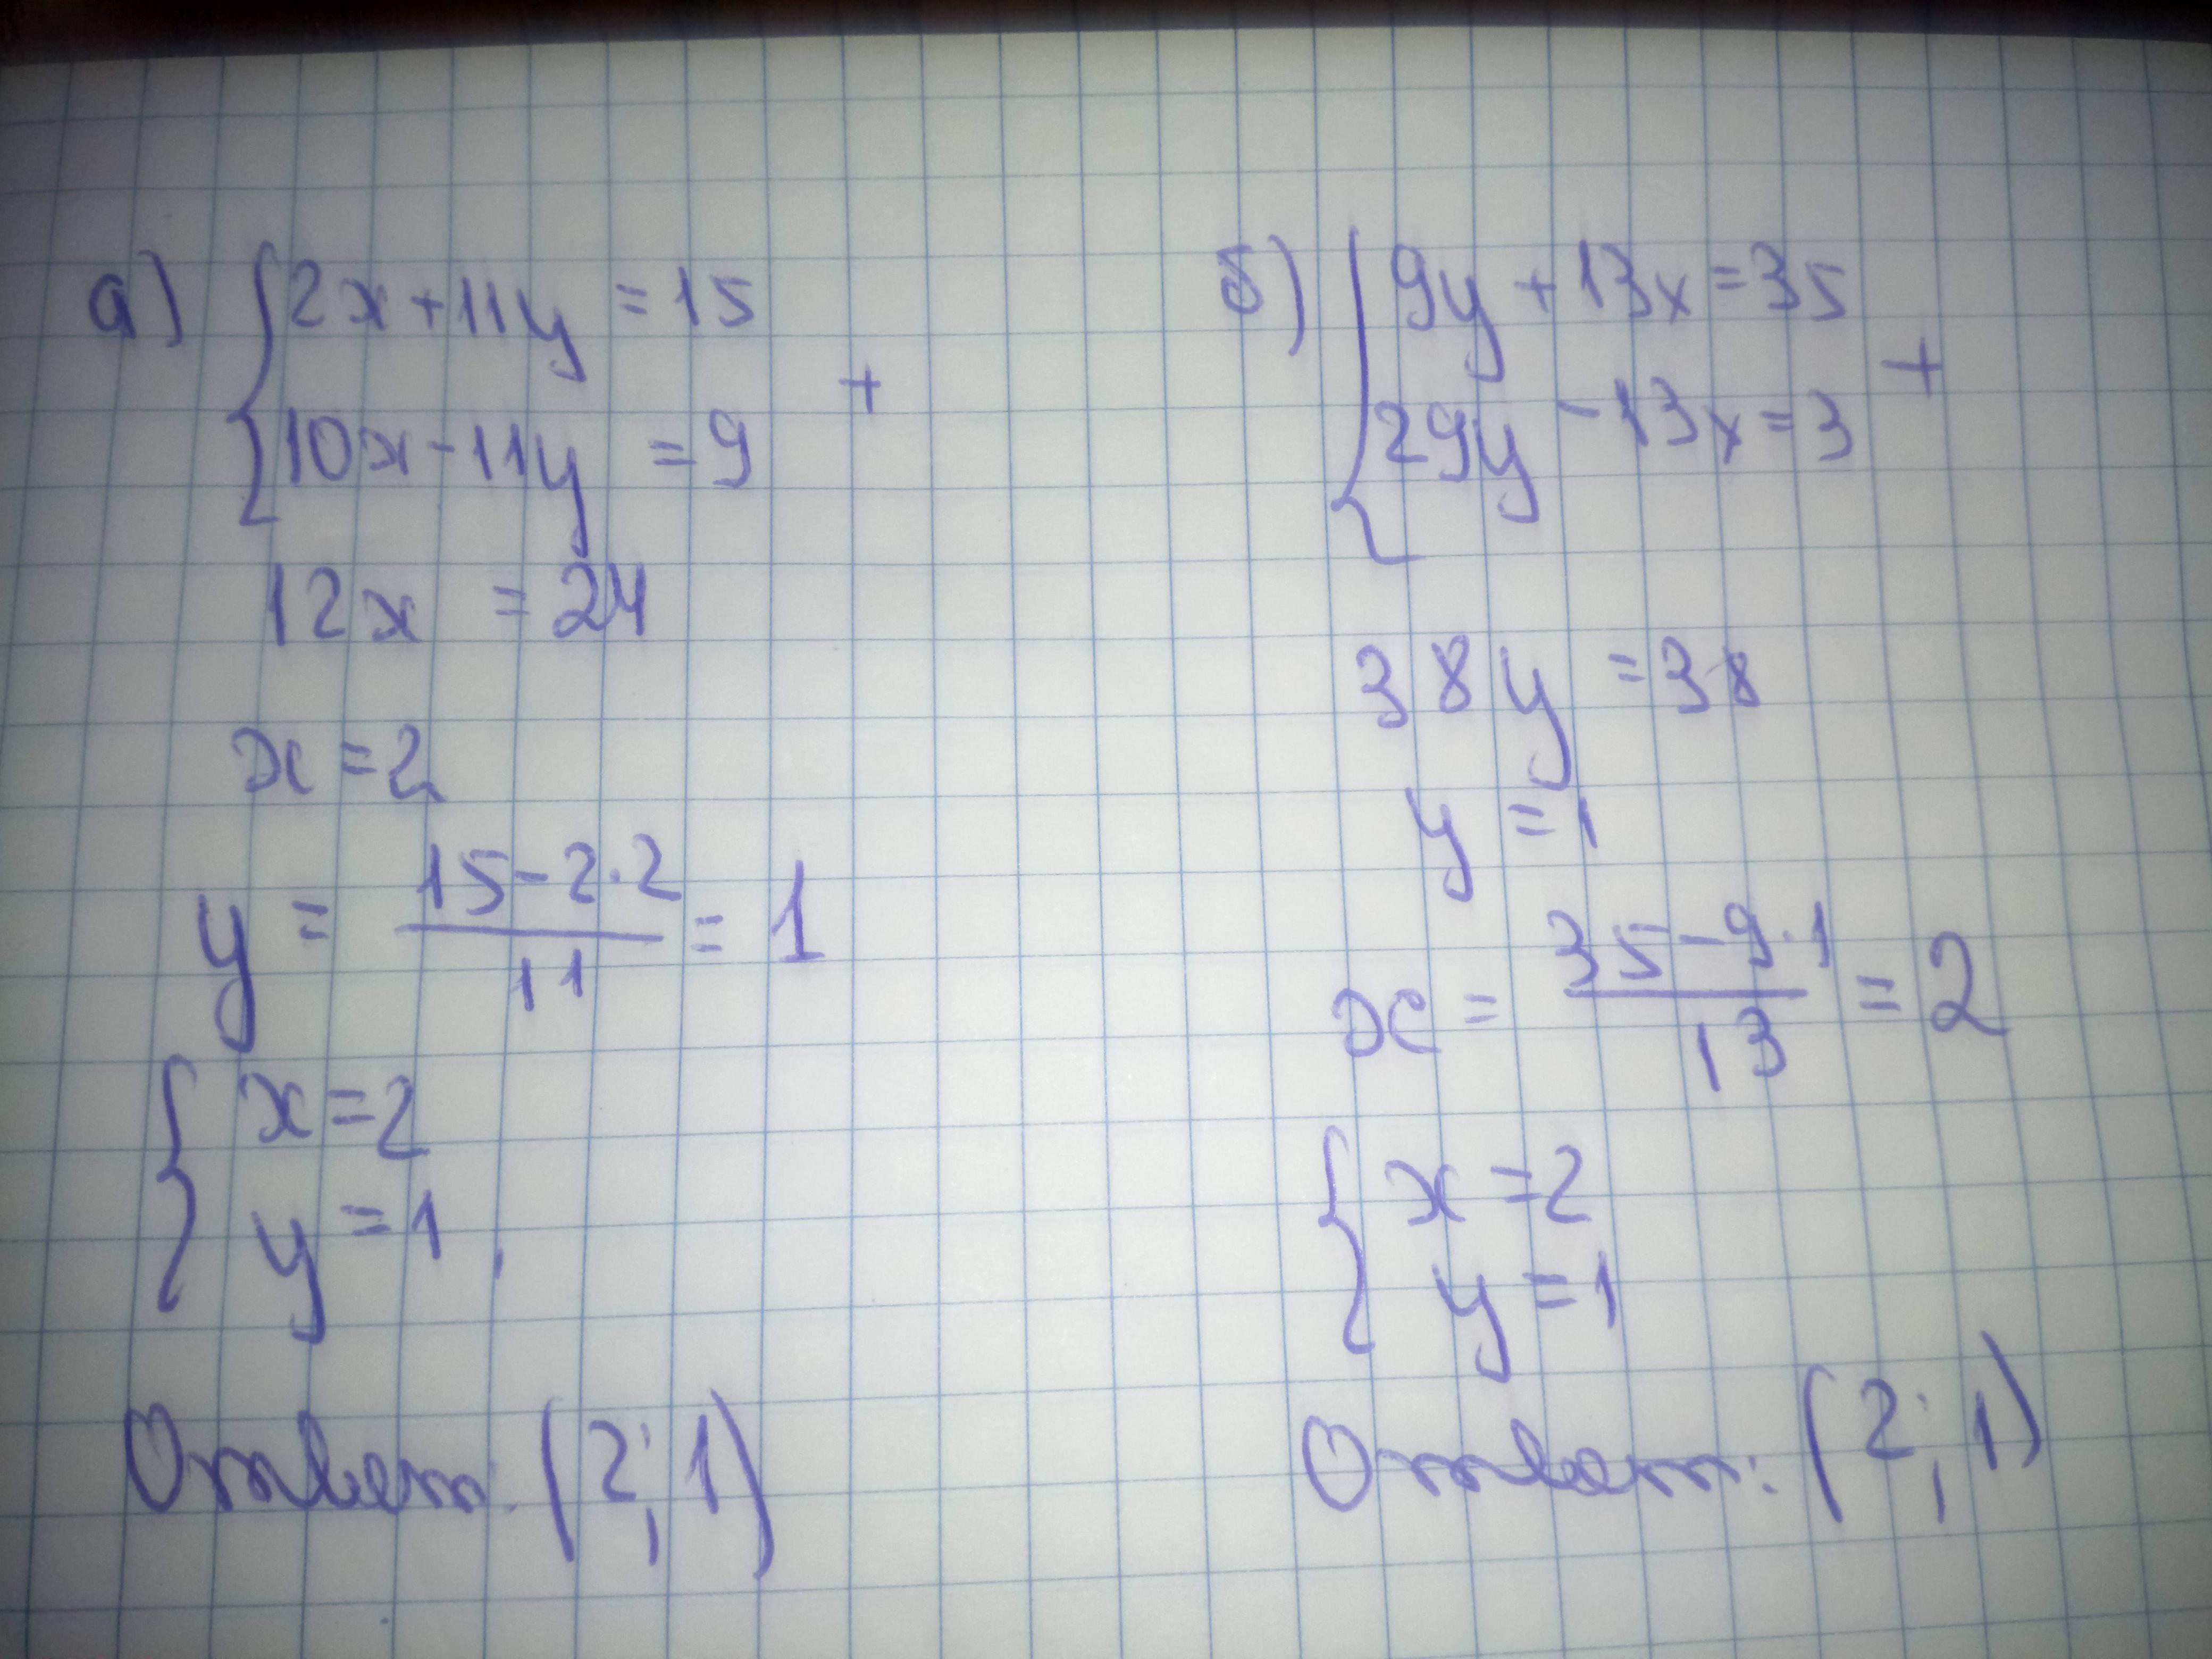 а) { 2x + 11y = 15
10x - 11y = 9 +
12x = 24
x = 2
y = (15 - 2·2)/11 = 1
{ x = 2
y = 1.
Ответ: (2; 1)
б) { 9y + 13x = 35
29y - 13x = 3 +
38y = 38
y = 1
x = (35 - 9·1)/13 = 2
{ x = 2
y = 1
Ответ: (2; 1)